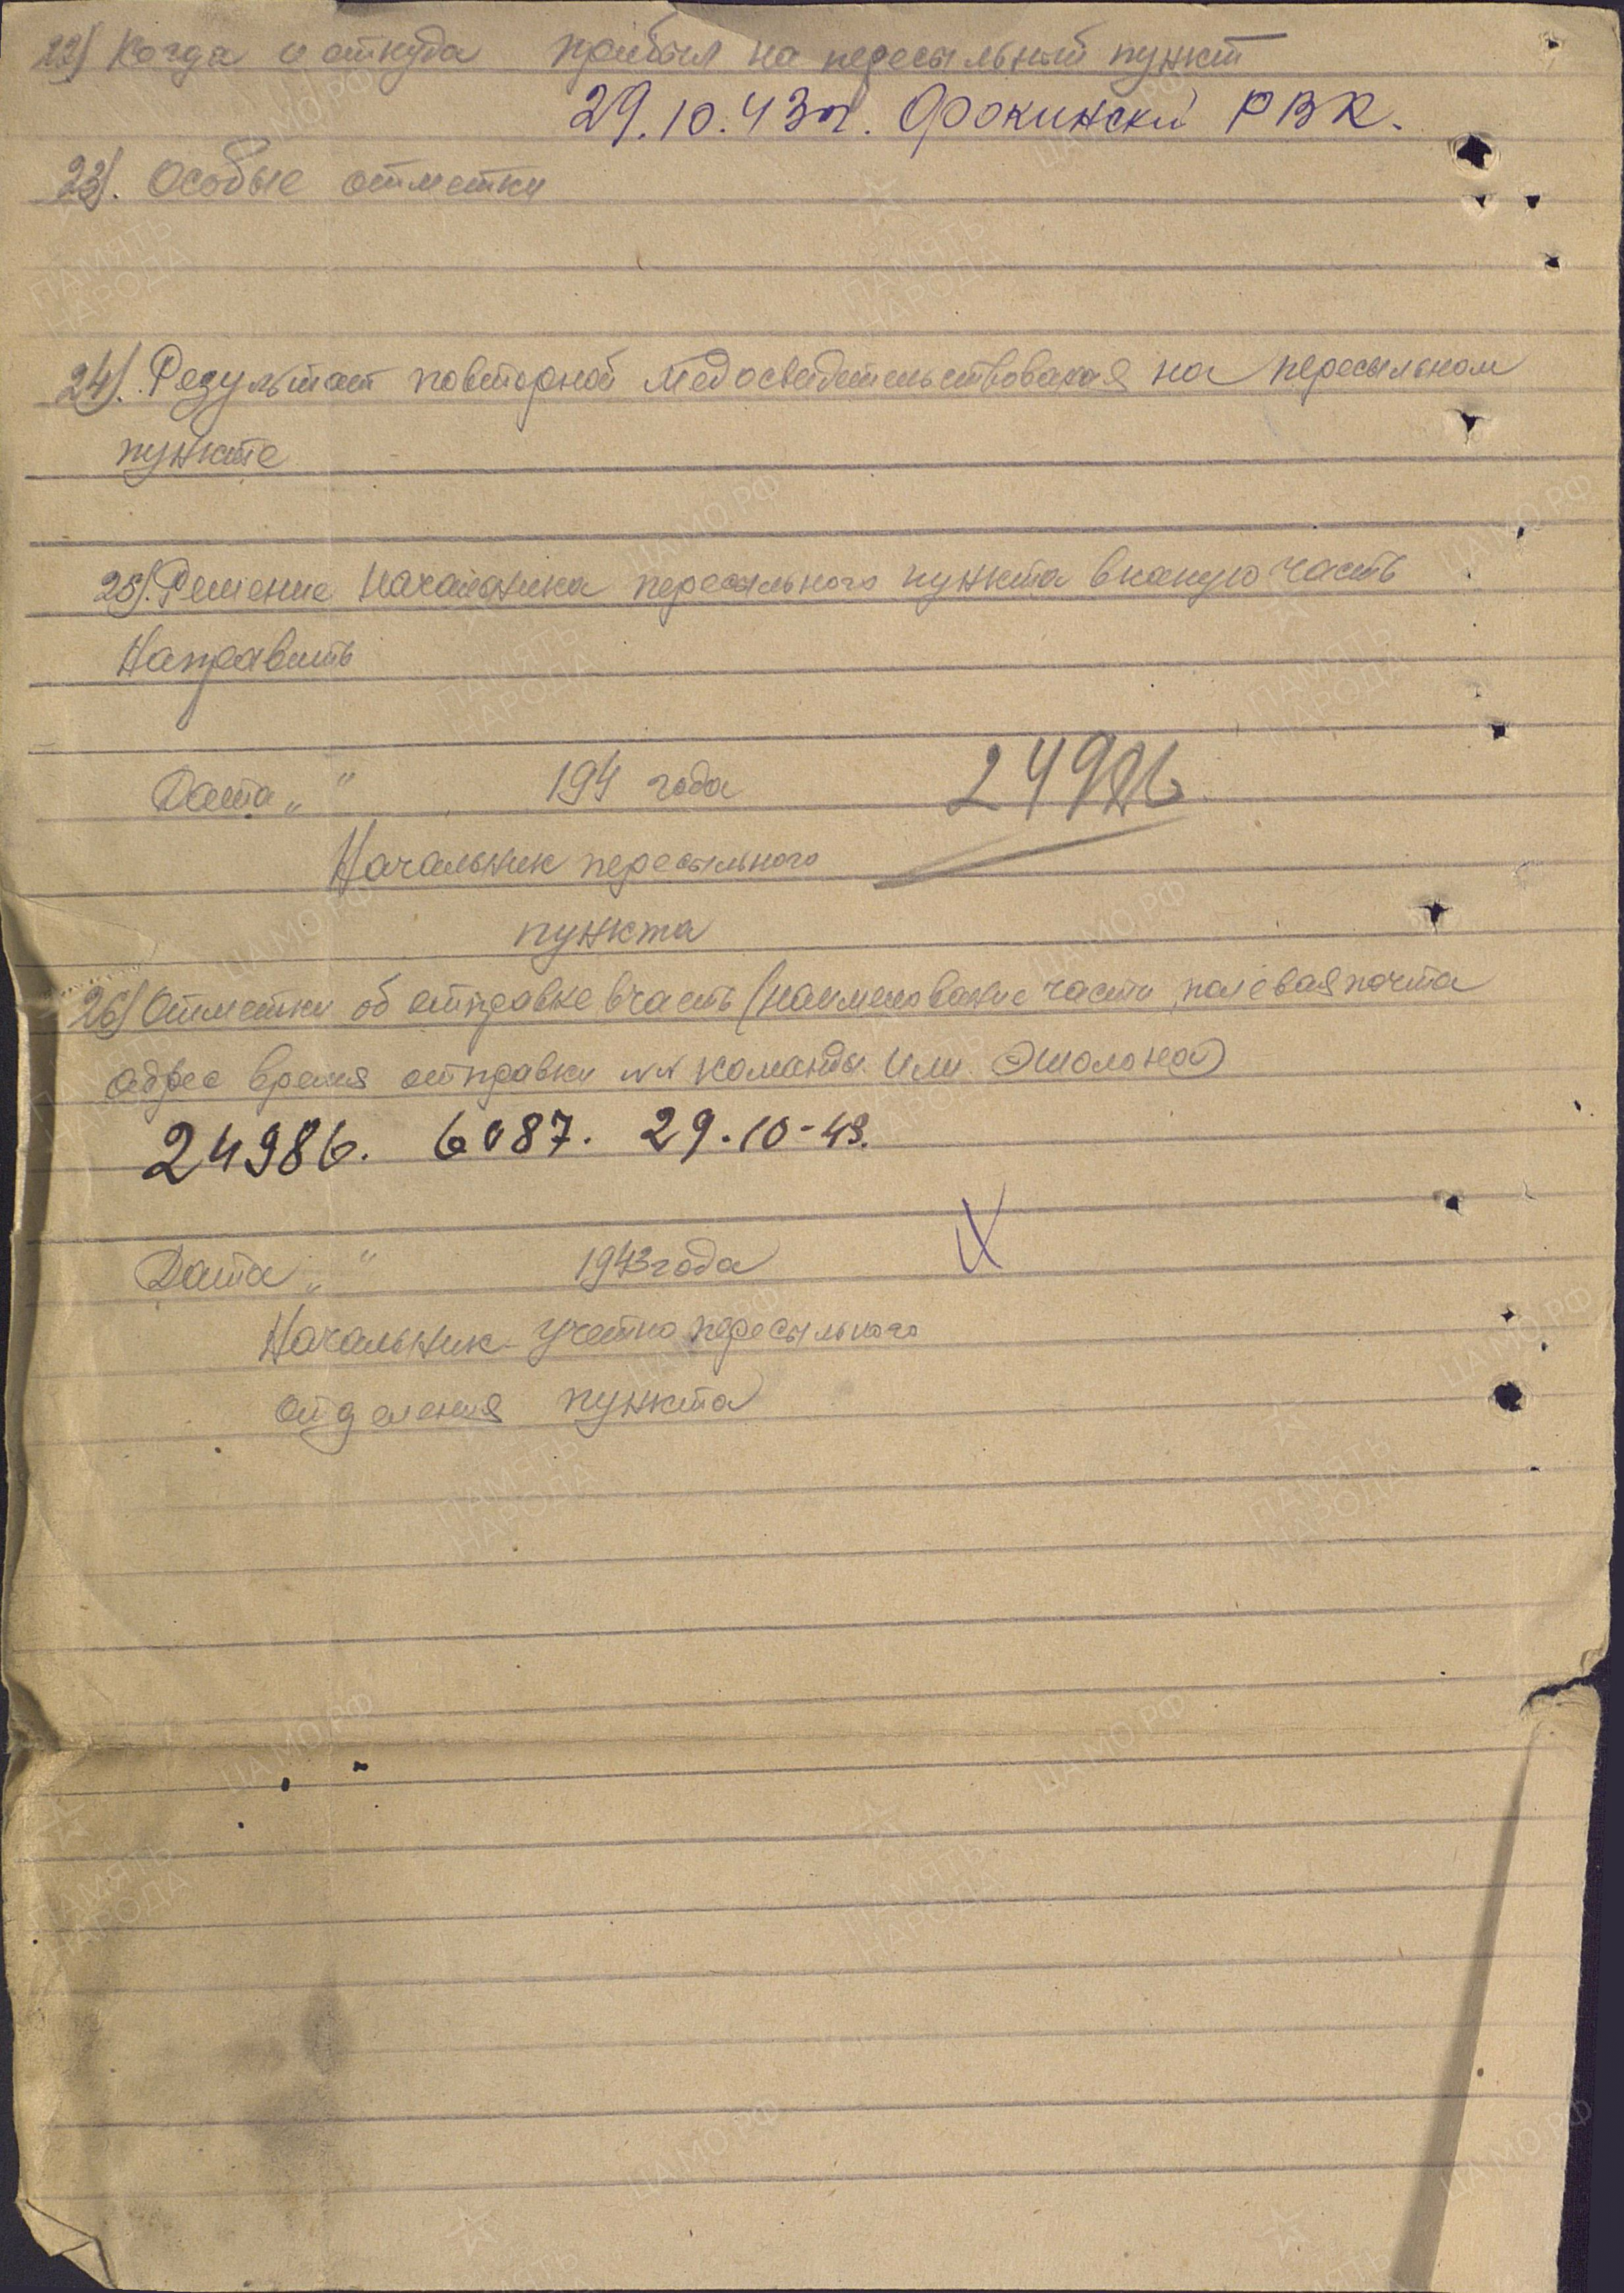 22) Когда и откуда прибыл на пересыльный пункт
29.10.43 г. Фокински РВК.
23). Особые отметки
24). Результат повторной медосведетельствования на пересыльном
пункте
25). Решение начальника пересыльного пункта в какую часть
Направить
Дата „ " 194 года
24986
Начальник пересыльного
пункта
26) Отметки об отправке в часть (наименование части, полевая почта
адрес время отправки №№ команды или эшолона)
24986. 6087. 29.10-43.
Дата „ " 1943 года
Начальник учетно пересыльного
отделения пункта